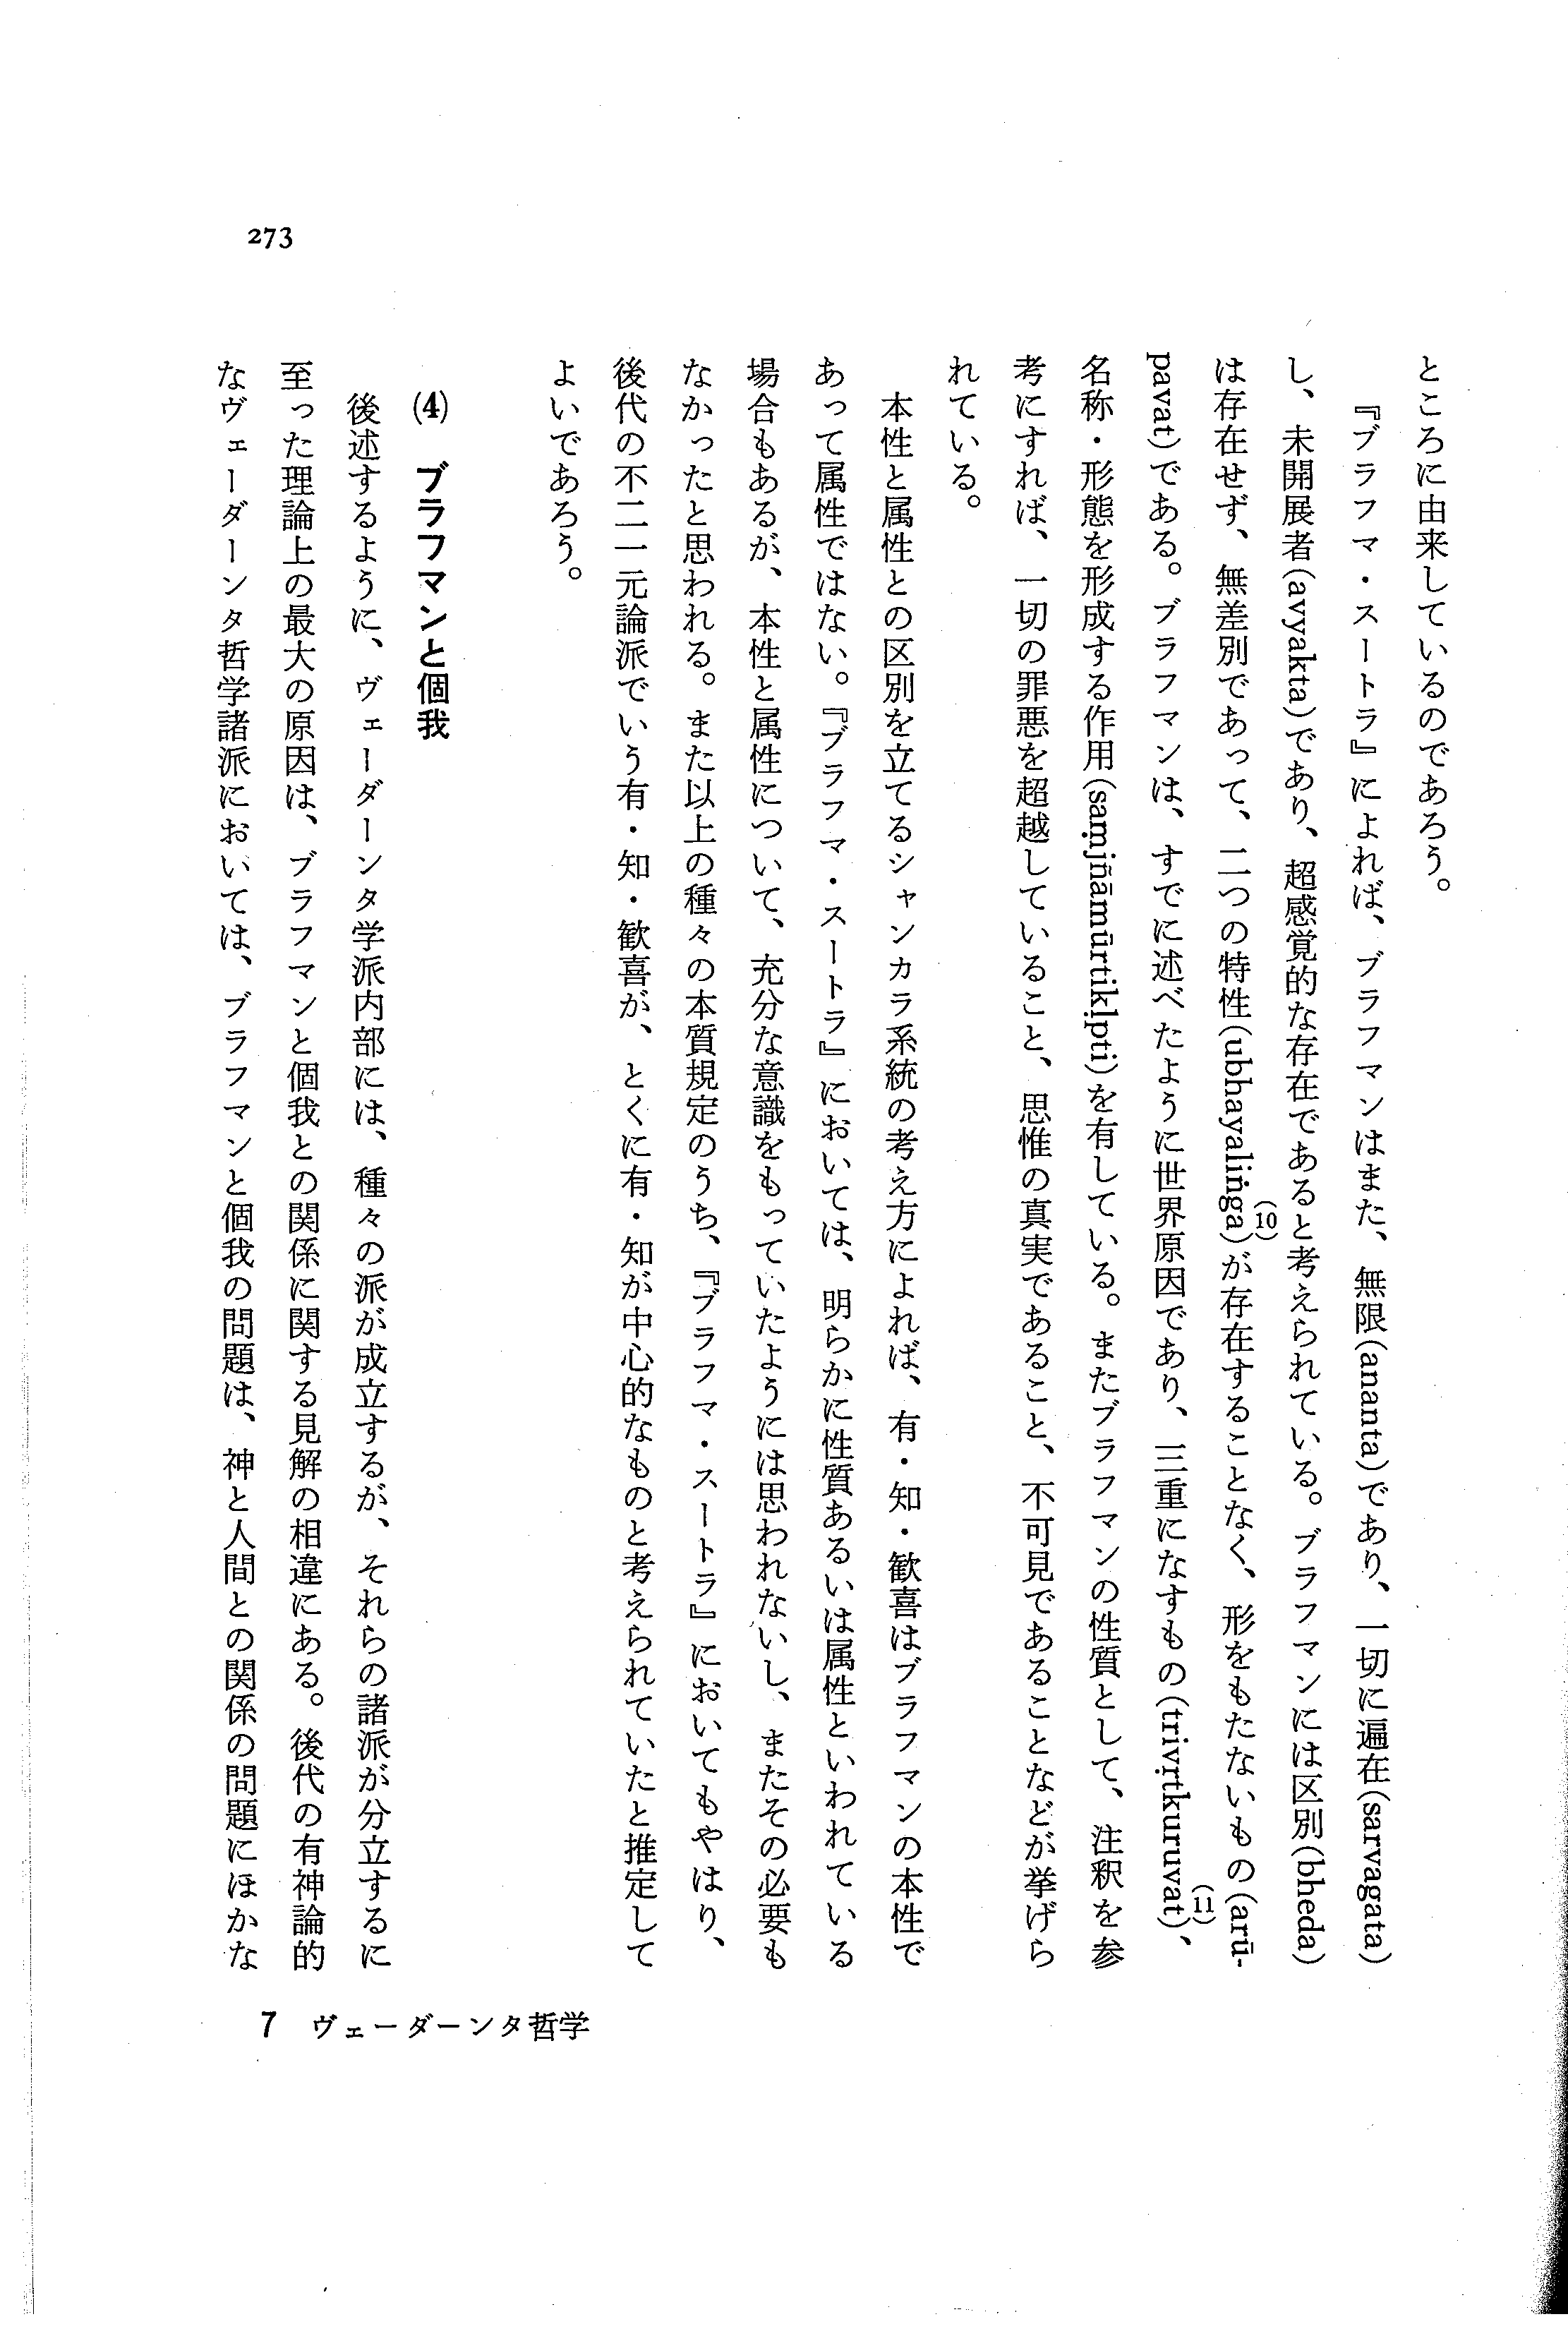 ところに由来しているのであろう。
『ブラフマ・スートラ』によれば、ブラフマンはまた、無限(ananta)であり、一切に遍在(sarvagata)
し、未開展者(avyakta)であり、超感覚的な存在であると考えられている。ブラフマンには区別(bheda)
は存在せず、無差別であって、二つの特性(ubhayaliṅga)(10)が存在することなく、形をもたないもの(arū-
pavat)である。ブラフマンは、すでに述べたように世界原因であり、三重になすもの(trivṛtkuruvat)(11)、
名称・形態を形成する作用(saṃjñāmūrtikḷpti)を有している。またブラフマンの性質として、注釈を参
考にすれば、一切の罪悪を超越していること、思惟の真実であること、不可見であることなどが挙げら
れている。
本性と属性との区別を立てるシャンカラ系統の考え方によれば、有・知・歓喜はブラフマンの本性で
あって属性ではない。『ブラフマ・スートラ』においては、明らかに性質あるいは属性といわれている
場合もあるが、本性と属性について、充分な意識をもっていたようには思われないし、またその必要も
なかったと思われる。また以上の種々の本質規定のうち、『ブラフマ・スートラ』においてもやはり、
後代の不二一元論派でいう有・知・歓喜が、とくに有・知が中心的なものと考えられていたと推定して
よいであろう。
(4) ブラフマンと個我
後述するように、ヴェーダーンタ学派内部には、種々の派が成立するが、それらの諸派が分立するに
至った理論上の最大の原因は、ブラフマンと個我との関係に関する見解の相違にある。後代の有神論的
なヴェーダーンタ哲学諸派においては、ブラフマンと個我の問題は、神と人間との関係の問題にほかな
273
7 ヴェーダーンタ哲学